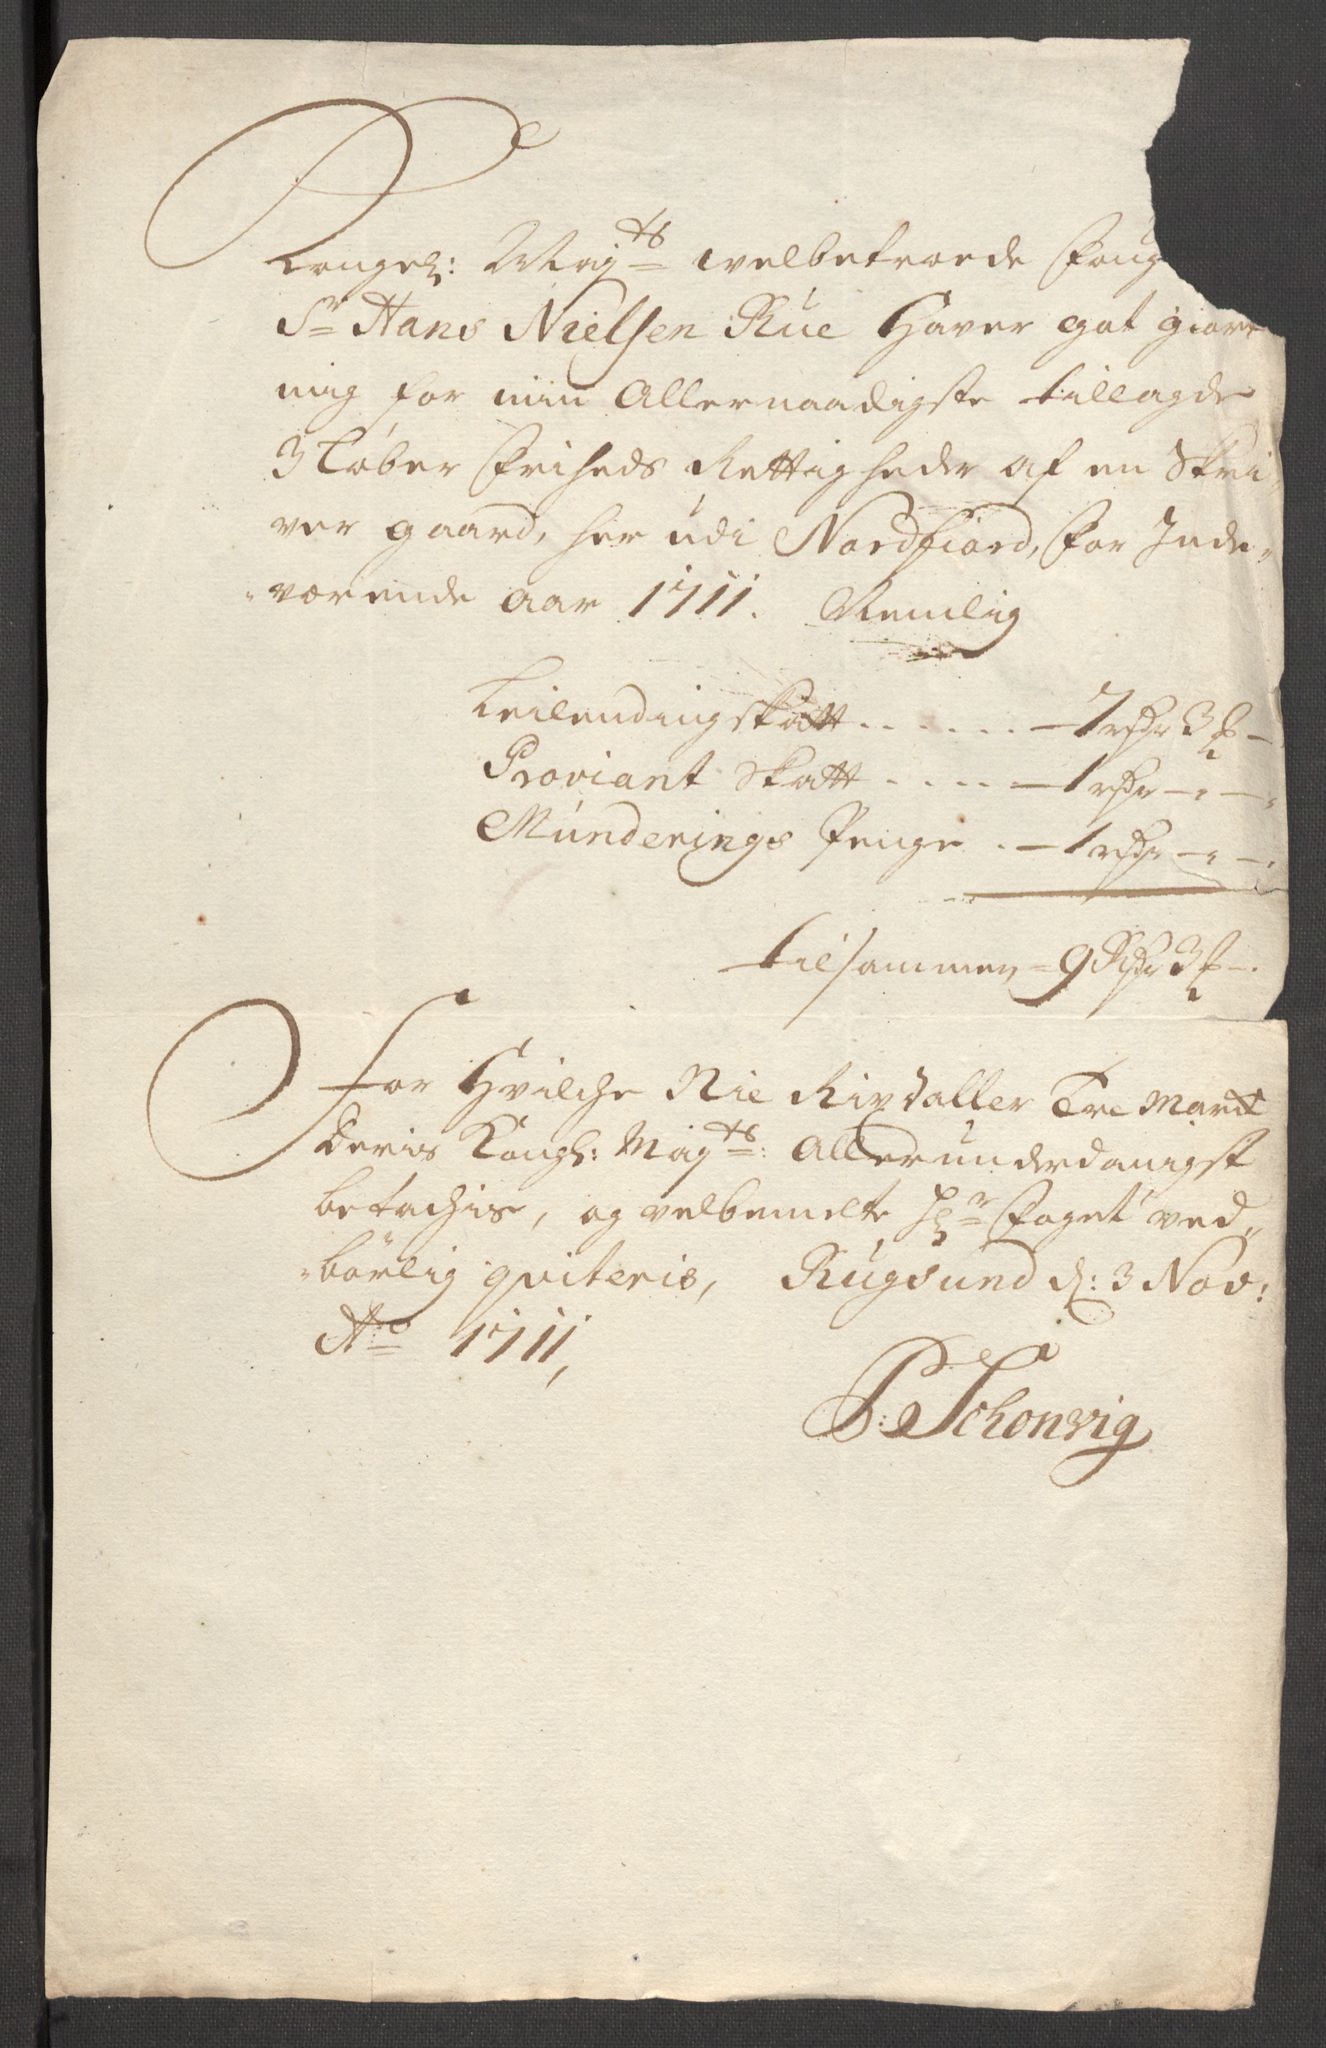 Kongel: Maj^ts welbetroede Foug
Sr Hans Nielsen Rue Haver got giort
mig for min Allernaadigste tillagde
3 Løber Friheds Rettigheder af en Skri-
ver gaard, her udi Nordfiord, for Inde-
-værende aar 1711. Nemlig
Leilendingskatt . . . . . . — 7 rdr 3 ƒ —
Proviant Skatt . . . . — 1 rdr — " — "
Münderings Penge . — 1 rdr — " — "
tilsammen = 9 Rdr 3 ƒ —.
For Hvilche Nie Rixdaller Tre March
Deris Kongl: Maj^ts: Allerunderdanigst
betachis, og velbemelte Hr Foget ved-
-børlig qviteris, Rugsund d: 3 Nov:
Ao 1711,
P: Schonvig